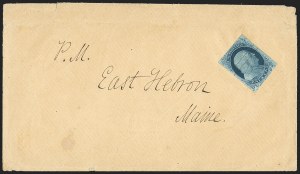 P.M.
East Hebron
Maine.